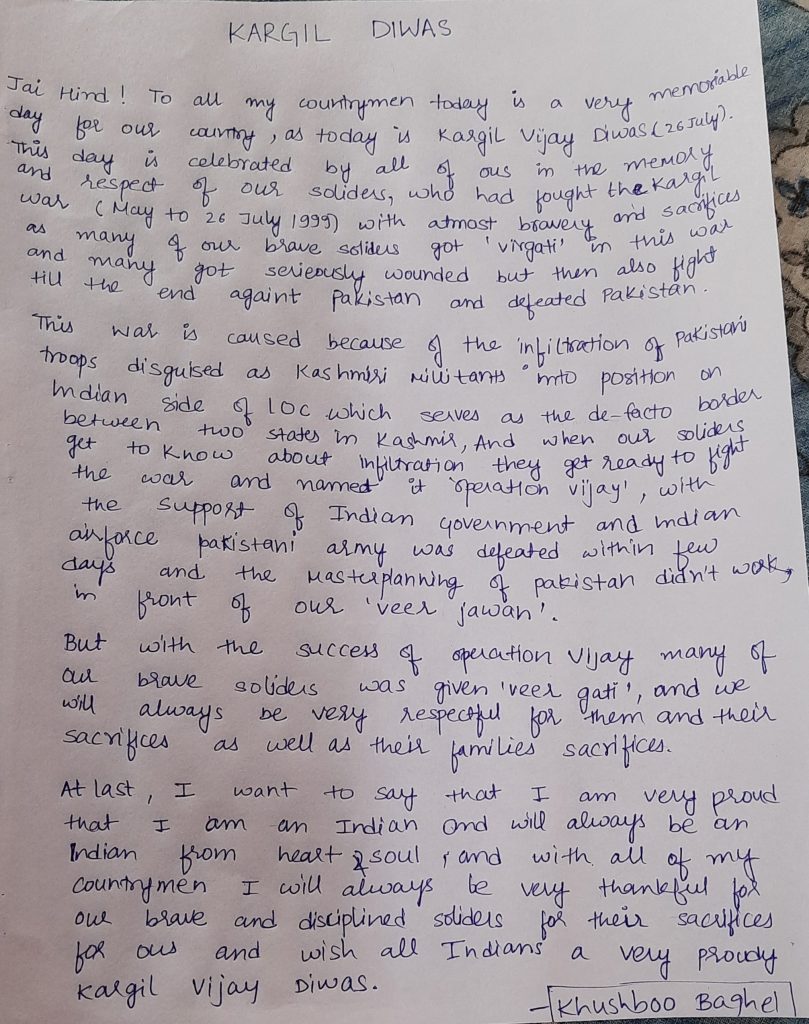 KARGIL DIWAS
Jai Hind! To all my countrymen today is a very memoriable
day for our country, as today is Kargil Vijay Diwas (26 July).
This day is celebrated by all of ous in the memory
and respect of our soliders, who had fought the Kargil
war (May to 26 July 1999) with atmost bravery and sacrifices
as many of our brave soliders got 'virgati' in this war
and many got serieously wounded but then also fight
till the end againt Pakistan and defeated Pakistan.
This war is caused because of the infiltration of Pakistani
troops disguised as Kashmiri Militants into position on
Indian side of LOC which serves as the de-facto border
between two states in Kashmir, And when our soliders
get to know about infiltration they get ready to fight
the war and named it 'operation vijay', with
the support of Indian government and Indian
airforce pakistani army was defeated within few
days and the Masterplanning of pakistan didn't work,
in front of our 'veer jawan'.
But with the success of operation Vijay many of
our brave soliders was given 'veer gati', and we
will always be very respectful for them and their
sacrifices as well as their families sacrifices.
At last, I want to say that I am very proud
that I am an Indian and will always be an
Indian from heart & soul, and with all of my
countrymen I will always be very thankful for
our brave and disciplined soliders for their sacrifices
for ous and wish all Indians a very proudy
Kargil Vijay Diwas.
- Khushboo Baghel